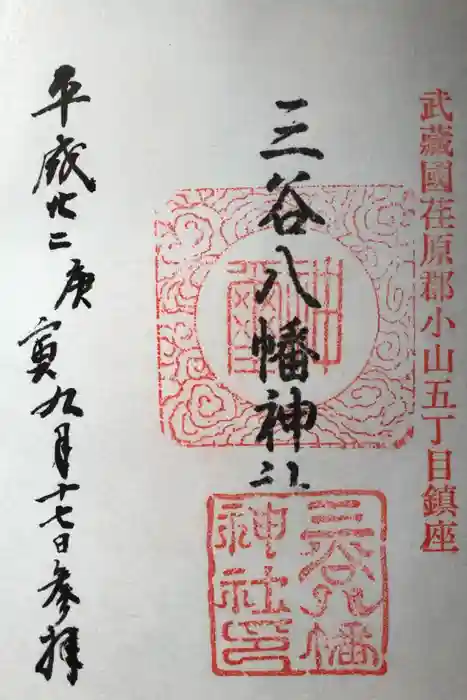 武藏國荏原郡小山五丁目鎮座
三谷八幡神社
三谷八幡
神社印
平成廿二庚寅九月十七日参拝